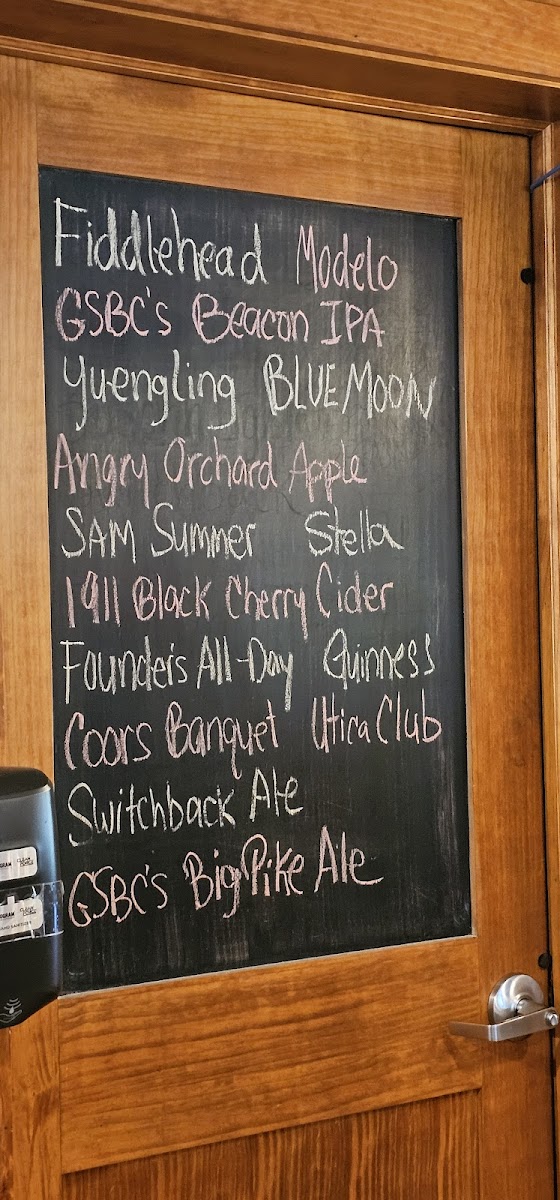 Fiddlehead Modelo
GSBC's Beacon IPA
Yuengling BLUE MOON
Angry Orchard Apple
SAM Summer Stella
1911 Black Cherry Cider
Founder's All-Day Guinness
Coors Banquet Utica Club
Switchback Ale
GSBC's Big Pike Ale